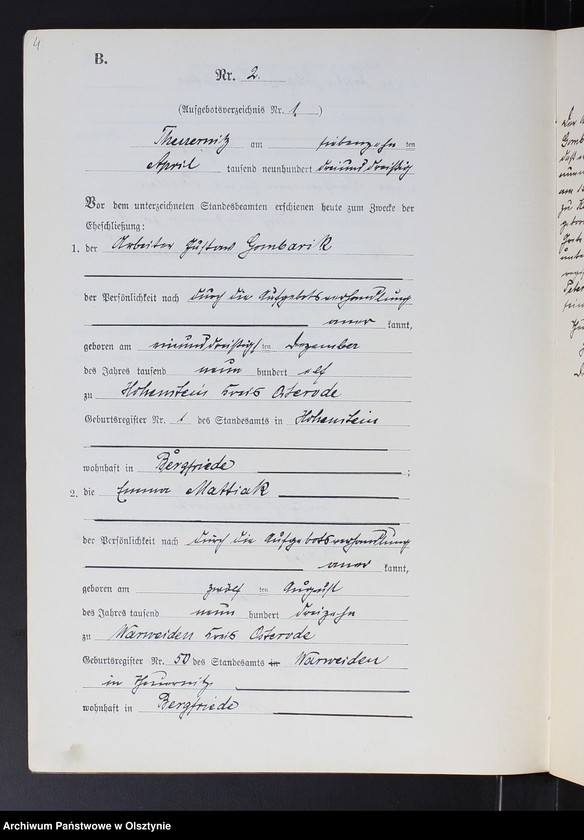 4
B.
Nr. 2.
(Aufgebotsverzeichnis Nr. 1.)
Theuernitz am siebenzehn ten
April tausend neunhundert dreiunddreißig
Vor dem unterzeichneten Standesbeamten erschienen heute zum Zwecke der
Eheschließung:
1. der Arbeiter Gustav Gombarik
der Persönlichkeit nach durch die Aufgebotsverhandlung
aner kannt,
geboren am einunddreißigs ten Dezember
des Jahres tausend neun hundert elf
zu Hohenstein Kreis Osterode
Geburtsregister Nr. 1 des Standesamts in Hohenstein
wohnhaft in Bergfriede ;
2. die Emma Mattiak
der Persönlichkeit nach durch die Aufgebotsverhandlung
aner kannt,
geboren am zwölf ten August
des Jahres tausend neun hundert dreizehn
zu Warweiden Kreis Osterode
Geburtsregister Nr. 50 des Standesamts in Warweiden
in Theuernitz
wohnhaft in Bergfriede
Archiwum Państwowe w Olsztynie